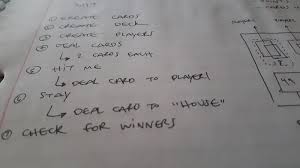 ① CREATE CARDS
② CREATE DECK
③ CREATE PLAYERS
④ DEAL CARDS
↳ 2 CARDS EACH
⑤ HIT ME
↳ DEAL CARD TO PLAYER
⑥ STAY
↳ DEAL CARD TO "HOUSE"
⑦ CHECK FOR WINNERS